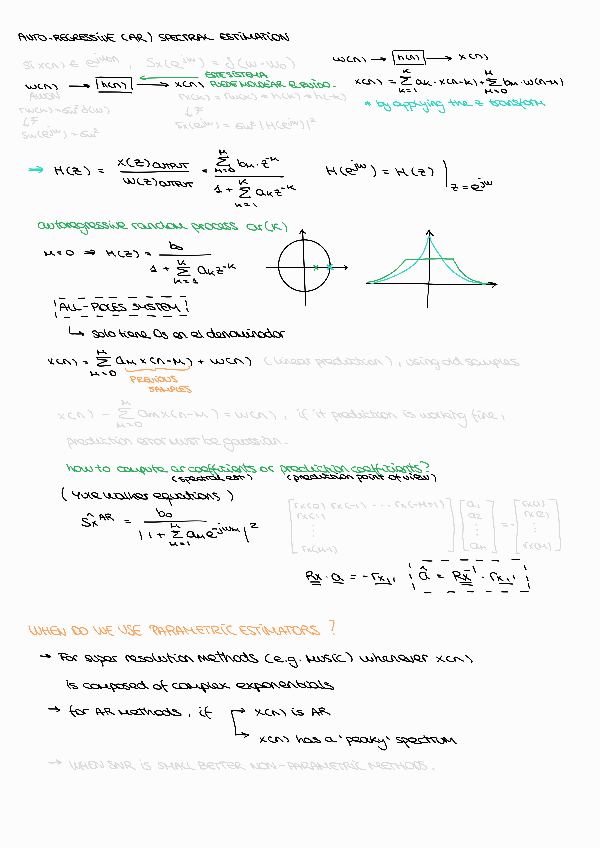 AUTO-REGRESSIVE (AR) SPECTRAL ESTIMATION
Si x(n) ∈ e^{jω₀n}, Sx(e^{jω}) = δ(ω-ω₀)
w(n) → [h(n)] → x(n)
w(n) → [h(n)] → x(n) ESTE SISTEMA PUEDE MOLDEAR EL RUIDO.
x(n) = Σ_{k=1}^{K} a_k · x(n-k) + Σ_{m=0}^{M} b_m · w(n-m)
rx(n) = rw(n) * h(n) * h(-n)
rw(n) = σw² δ(n)
* by applying the z transform
↳F
↳F
Sw(e^{jω}) = σw²
Sx(e^{jω}) = σw² |H(e^{jω})|²
⇒ H(z) = X(z) OUTPUT / W(z) OUTPUT = Σ_{m=0}^{M} b_m · z^{-k} / 1 + Σ_{k=1}^{K} a_k z^{-k}
H(e^{jω}) = H(z) |_{z=e^{jω}}
autoregressive random process ar(k)
M=0 ⇒ H(z) = b₀ / 1 + Σ_{k=1}^{K} a_k z^{-k}
ALL-POLES SYSTEM
↳ solo tiene 0s en el denominador
x(n) = Σ_{m=0}^{M} a_m x(n-m) + w(n) (linear prediction), using old samples
PREVIOUS
SAMPLES
x(n) - Σ_{m=0}^{M} a_m x(n-m) = w(n), if it prediction is working fine,
prediction error must be gaussian.
how to compute ar coefficients or prediction coefficients?
(spectral est) (prediction point of view)
(Yule walker equations)
Ŝx^{AR} = b₀ / |1 + Σ_{m=1}^{M} a_m e^{-jωm}|²
[rx(0) rx(-1) ... rx(-M+1)] [a1] = - [rx(1)]
rx(1) a2 rx(2)
⋮ ⋮ ⋮
rx(M-1) a_M rx(M)
Rx · a = -rx1, â = Rx^{-1} · rx1
WHEN DO WE USE PARAMETRIC ESTIMATORS?
→ For super resolution methods (e.g. MUSIC) whenever x(n)
is composed of complex exponentials
→ for AR Methods, if → x(n) is AR
→ x(n) has a "peaky" spectrum
→ WHEN SNR IS SMALL BETTER NON-PARAMETRIC METHODS.